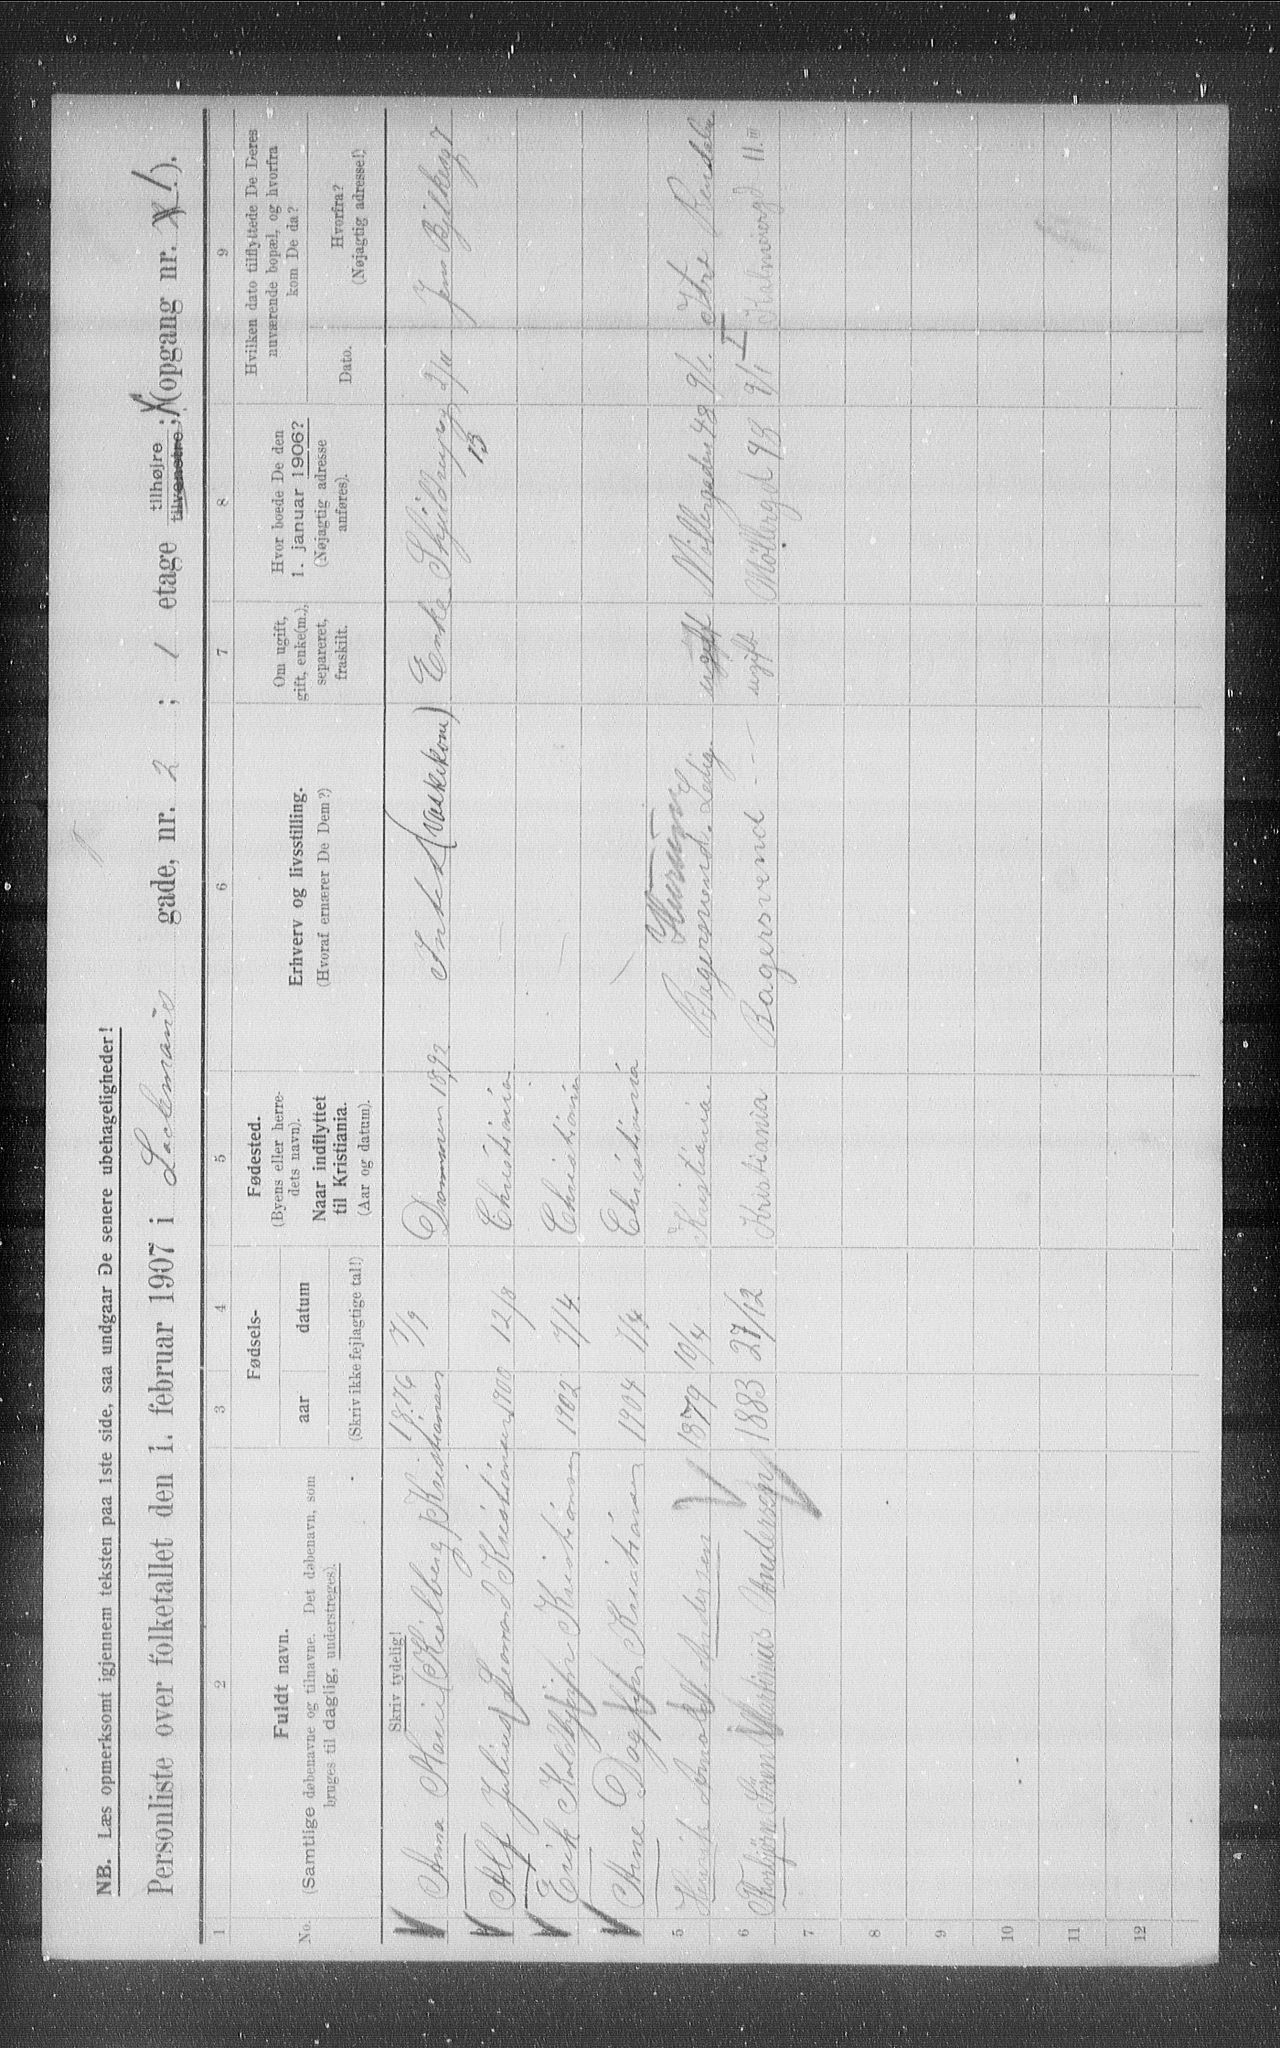 NB. Læs opmerksomt igjennem teksten paa 1ste side, saa undgaar De senere ubehageligheder!
Personliste over folketallet den 1. februar 1907 i gade, nr. 2 ; 1 etage tilhøjre tilvenstre; (opgang nr. 1.).
1 2 3 4 5 6 7 8 9
No.
Fuldt navn.
(Samtlige døbenavne og tilnavne. Det døbenavn, som
bruges til daglig, understreges).
Fødsels-
aar datum
(Skriv ikke fejlagtige tal!)
Fødested.
(Byens eller herre-
dets navn).
Naar indflyttet
til Kristiania.
(Aar og datum).
Erhverv og livsstilling.
(Hvoraf ernærer De Dem?)
Om ugift,
gift, enke(m.),
separeret,
fraskilt.
Hvor boede De den
1. januar 1906?
(Nøjagtig adresse
anføres).
Hvilken dato tilflyttede De Deres
nuværende bopæl, og hvorfra
kom De da?
Dato.
Hvorfra?
(Nøjagtig adresse!)
Skriv tydelig!
Anna Marie Kristiansen 1876 7/9 Drammen 1892 (Vaskekone) Enke 13 2/11
Alf Julius Kristiansen 1900 12/8 Christiania
Erik Kristiansen 1902 7/4 Christiania
Arne Dag Kristiansen 1904 7/4 Christiania
5 Henrik Arnold Andersen 1879 10/4 Kristiania Bagersvend. Ledig. ugift Møllergaden 48 9/1. Rendalen
6 Thorbjørn Martinius Andersen 1883 27/12 Kristiania Bagersvend - — ugift Møllergd 48 9/1 11. III
7
8
9
10
11
12